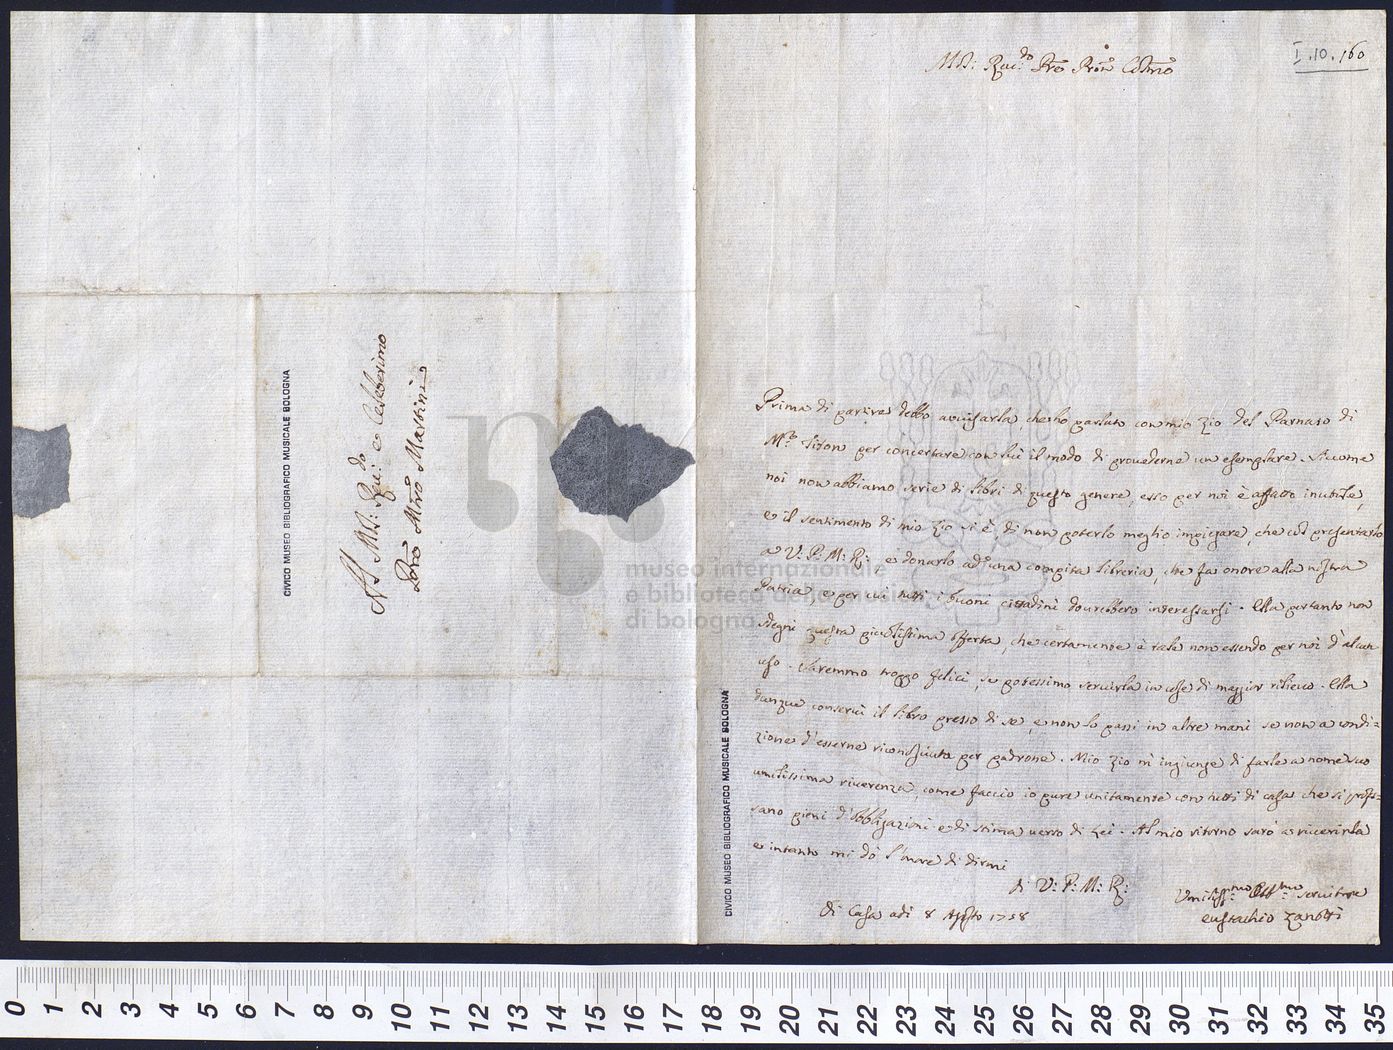 Al M.to Rev.do e Celeberimo
Pad.e M.ro Martini
CIVICO MUSEO BIBLIOGRAFICO MUSICALE BOLOGNA
museo internazionale
e biblioteca della musica
di bologna
I.10.160
M.to Rev.do P.re P.ron
Prima di partire debbo avvisarla, che ho parlato con mio Zio del Parnaso di
M.r Titon per concertare con lui il modo di provederne un esemplare. Siccome
noi non abbiamo serie di libri di questo genere, esso per noi è affatto inutile,
e il sentimento di mio Zio si è, di non poterlo meglio impiegare, che col presentarlo
a V: P: M: R: e donarlo ad una compita libreria, che fa onore alla nostra
Patria, e per cui tutti i buoni cittadini dovrebbero interessarsi. Ella pertanto non
sdegni questa piccolissima offerta, che certamente è tale non essendo per noi d'alcun
uso. Saremmo troppo felici, se potessimo servirla in cose di maggior rilievo. Ella
dunque conservi il libro presso di se, e non lo passi in altre mani se non a condi=
zione d'esserne riconosciuto per padrone. Mio Zio m'ingiunge di farle a nome suo
umilissima riverenza, come faccio io pure unitamente con tutti di casa che si profes=
sano pieni d'obbligazioni e di stima verso di Lei. Al mio ritorno sarò a riverirla
e intanto mi dò l'onore di dirmi
di V: P: M: R:
Di Casa adi 8 Agosto 1758
Umiliss.mo Obb.mo servitore
Eustachio Zanotti
CIVICO MUSEO BIBLIOGRAFICO MUSICALE BOLOGNA
0 1 2 3 4 5 6 7 8 9 10 11 12 13 14 15 16 17 18 19 20 21 22 23 24 25 26 27 28 29 30 31 32 33 34 35